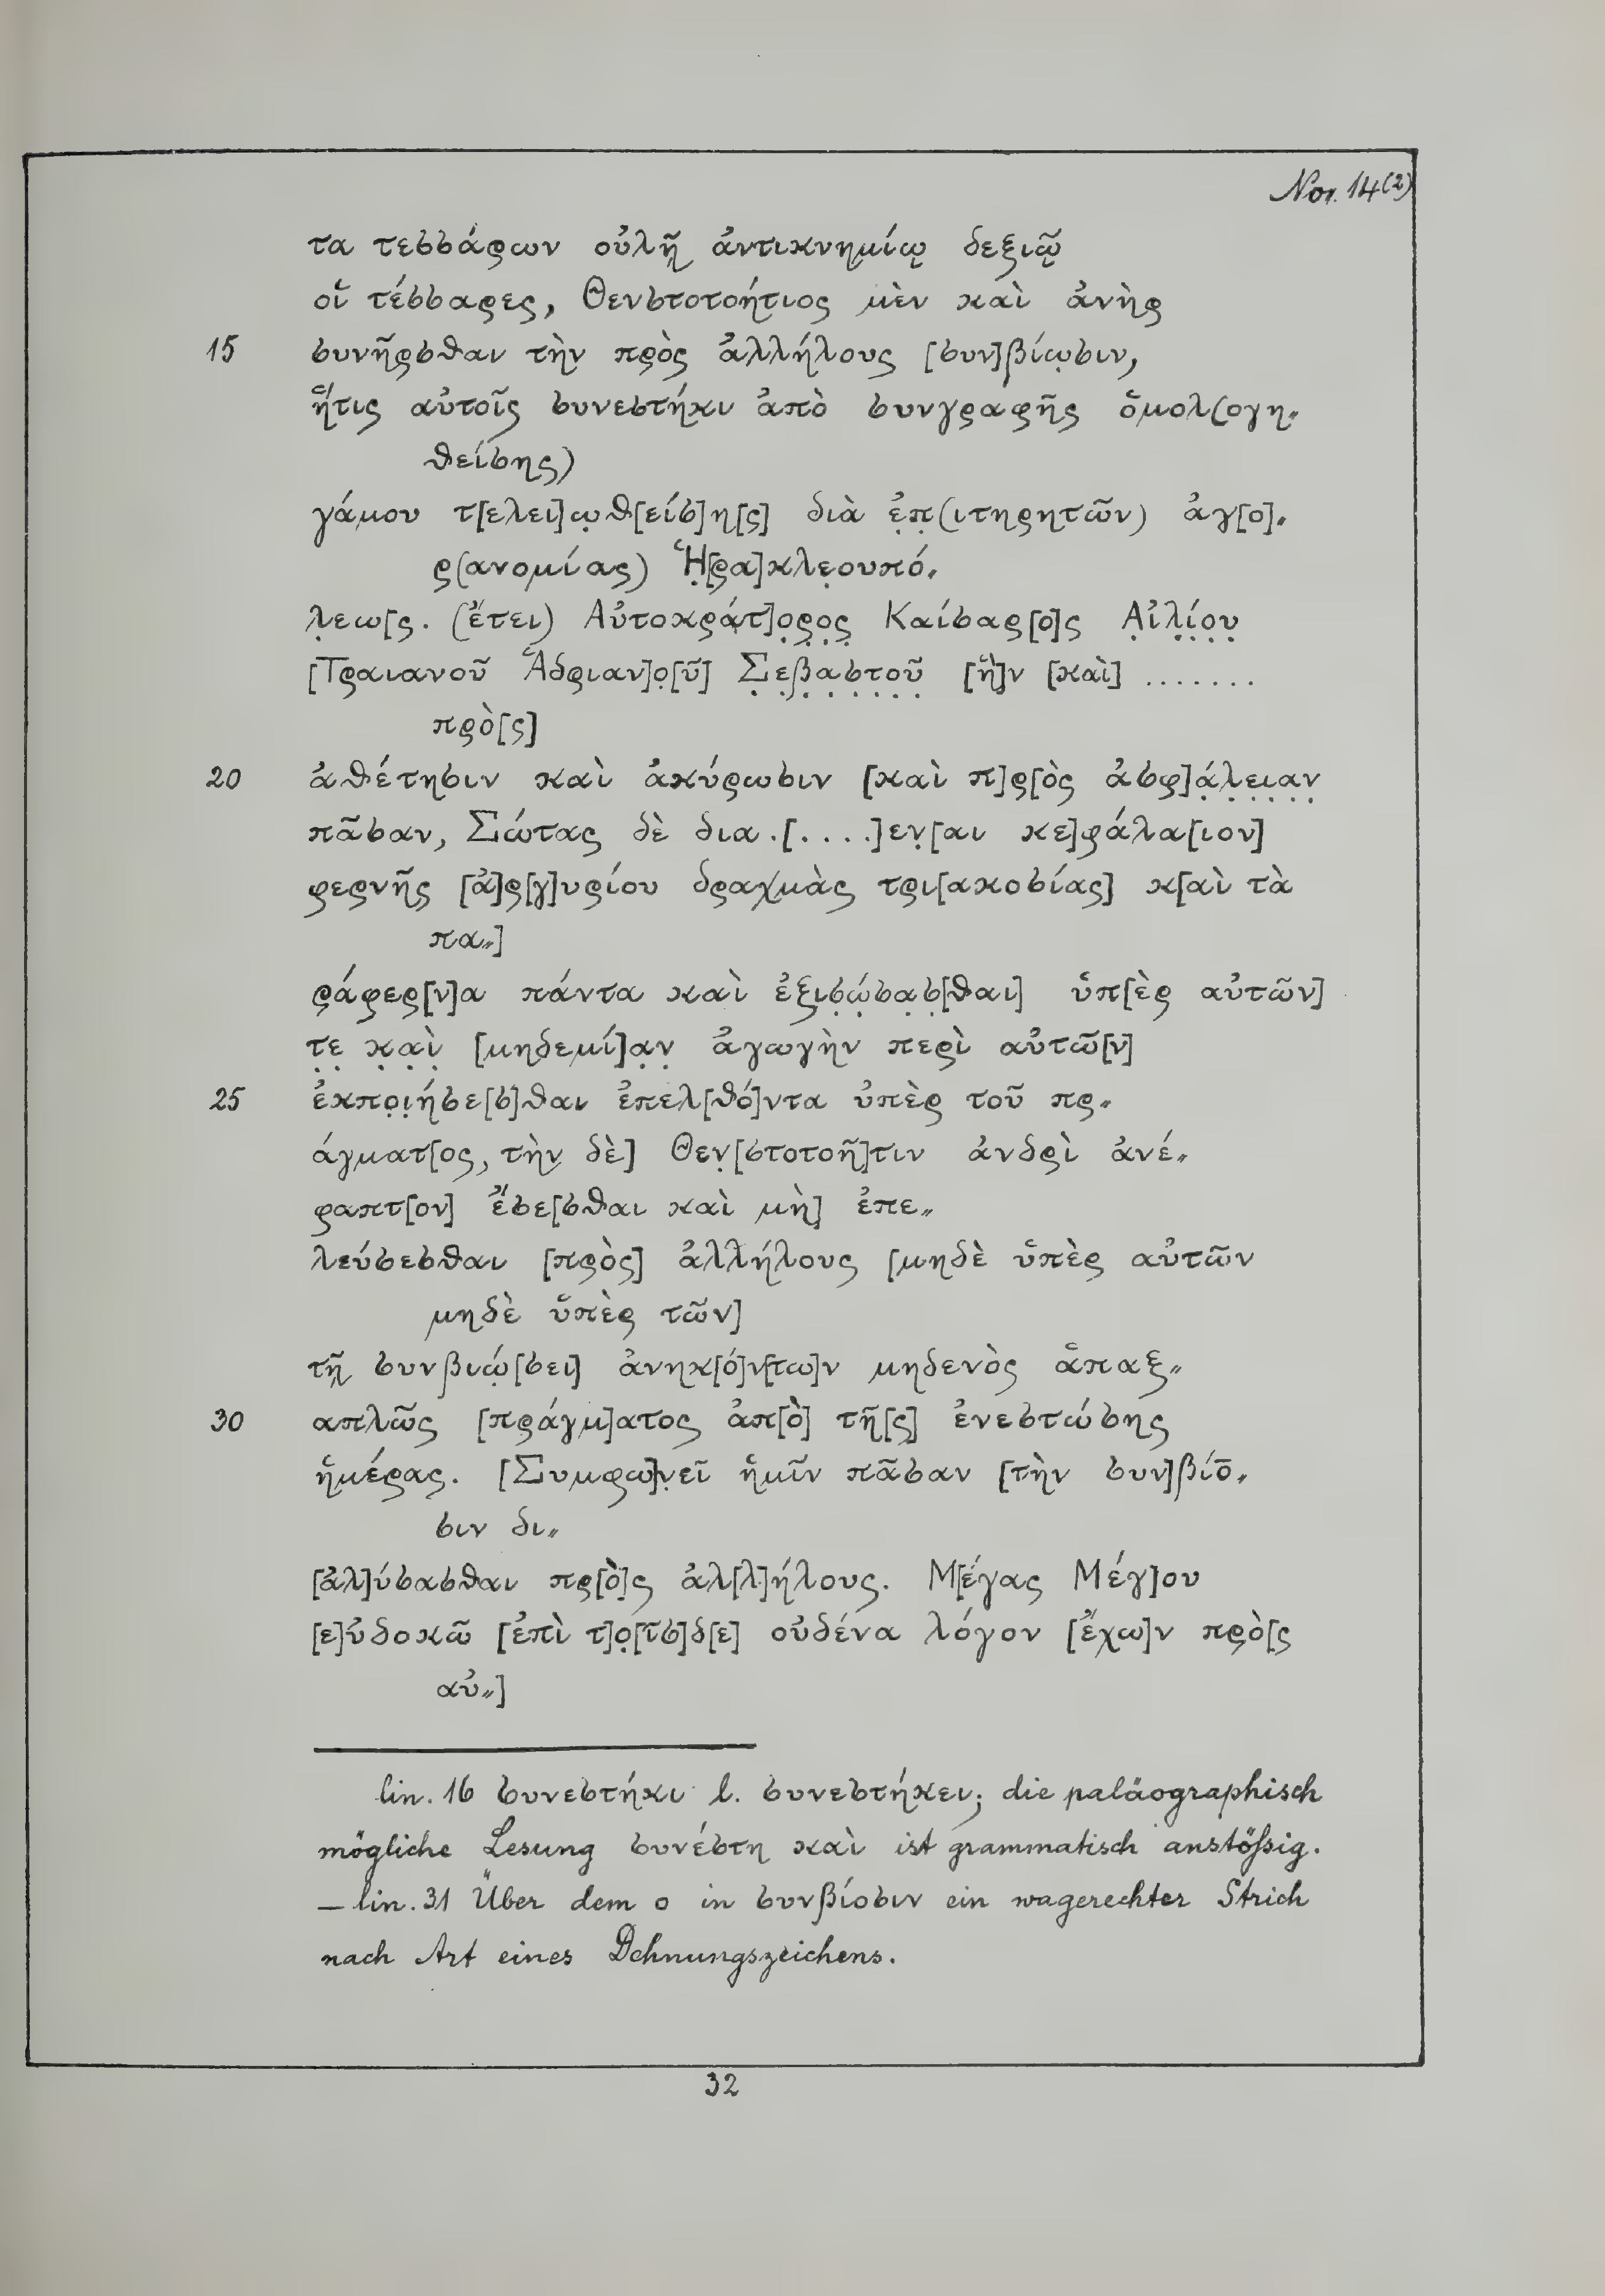 Nor. 14 (2)
τα τεσσάρων οὐλῆι ἀντικνημίῳ δεξιῷ
οἵ τέσσαρες, Θενστοτοήτιος μὲν καὶ ἀνὴρ
15 συνῆρσθαι τὴν πρὸς ἀλλήλους [συν]βίωσιν,
ἥτις αὐτοῖς συνεστήκι ἀπὸ συνγραφῆς ὁμολ(ογη„
θείσης)
γάμου τ[ελει]ω̣θ[είσ]η[ς] διὰ ἐ̣π̣(ιτηρητῶν) ἀγ[ο]„
ρ(ανομίας) Ἡ̣[ρα]κλε̣ουπό„
λ̣εω[ς. (ἔτει) Αὐτοκράτ]ο̣ρ̣ο̣ς̣ Καίσαρ[ο]ς Α̣ἰ̣λ̣ί̣ο̣υ̣
[Τραιανοῦ Ἁδριαν]ο̣[ῦ] Σ̣ε̣β̣α̣σ̣τ̣ο̣ῦ̣ [ἣ]ν [καὶ] .......
πρὸ[ς]
20 ἀθέτησιν καὶ ἀκύρωσιν [καὶ π]ρ[ὸς ἀσφ]ά̣λ̣ε̣ι̣α̣ν̣
πᾶσαν, Σώτας δὲ δια.[....]εν̣[αι κε]φάλα[ιον]
φερνῆς [ἀ]ρ[γ]υρίου δραχμὰς τρι[ακοσίας] κ[αὶ τὰ
πα„]
ράφερ[ν]α πάντα καὶ ἐξισ̣ώ̣σα̣σ̣[θαι] ὑπ[ὲρ αὐτῶν]
τ̣ε̣ κ̣α̣ὶ̣ [μηδεμί]α̣ν̣ ἀγωγὴν περὶ αὐτῶ[ν]
25 ἐκπο̣ι̣ήσε[σ]θαι ἐπελ[θό]ντα ὑπὲρ τοῦ πρ„
άγματ[ος, τὴν δὲ] Θεν̣[στοτοῆ]τιν ἀνδρὶ ἀνέ„
φαπτ[ον] ἔσε[σθαι καὶ μὴ] ἐπε„
λεύσεσθαι [πρὸς] ἀλλήλους [μηδὲ ὑπὲρ αὐτῶν
μηδὲ ὑπὲρ τῶν]
τῇ συνβιώ̣[σει] ἀνηκ[ό]ν[τω]ν μηδενὸς ἁπαξ„
30 απλῶς [πράγμ]ατος ἀπ[ὸ] τῆ[ς] ἐνεστώσης
ἡμέρας. [Συμφω]ν̣εῖ ἡμῖν πᾶσαν [τὴν συν]βίο̄„
σιν δι„
[αλ]ύσασθαι πρ[ὸ]ς ἀλ[λ]ήλους. Μ[έγας Μέγ]ου
[ε]ὐδοκῶ [ἐπὶ τ]ο̣[ῖσ]δ[ε] οὐδένα λόγον [ἔχω]ν πρὸ[ς
αὐ„]
lin. 16 συνεστήκι l. συνεστήκει; die paläographisch
mögliche Lesung συνέστη καὶ ist grammatisch anstößig.
— lin. 31 Über dem ο in συνβίοσιν ein wagerechter Strich
nach Art eines Dehnungszeichens.
32